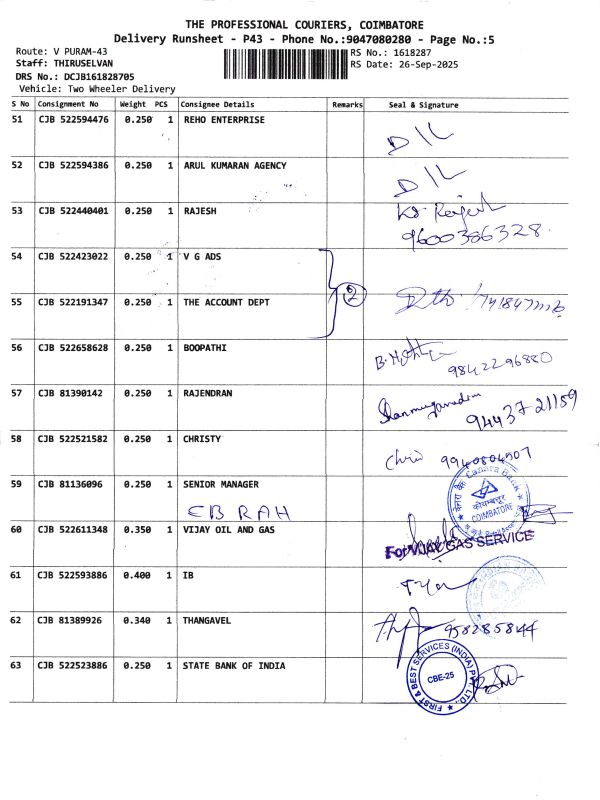 THE PROFESSIONAL COURIERS, COIMBATORE
Delivery Runsheet - P43 - Phone No.:9047080280 - Page No.:5
Route: V PURAM-43 RS No.: 1618287
Staff: THIRUSELVAN RS Date: 26-Sep-2025
DRS No.: DCJB161828705
Vehicle: Two Wheeler Delivery
S No Consignment No Weight PCS Consignee Details Remarks Seal & Signature
51 CJB 522594476 0.250 1 REHO ENTERPRISE
D/L
52 CJB 522594386 0.250 1 ARUL KUMARAN AGENCY
D/L
53 CJB 522440401 0.250 1 RAJESH
9600386328
54 CJB 522423022 0.250 1 V G ADS
2
55 CJB 522191347 0.250 1 THE ACCOUNT DEPT
56 CJB 522658628 0.250 1 BOOPATHI
9842296880
57 CJB 81390142 0.250 1 RAJENDRAN
94437-21159
58 CJB 522521582 0.250 1 CHRISTY
9940804507
59 CJB 81136096 0.250 1 SENIOR MANAGER
Canara Bank
केनरा बैंक
कोयम्बत्तूर
COIMBATORE
EB RAH
60 CJB 522611348 0.350 1 VIJAY OIL AND GAS
For VIJAY GAS SERVICE
61 CJB 522593886 0.400 1 IB
62 CJB 81389926 0.340 1 THANGAVEL
63 CJB 522523886 0.250 1 STATE BANK OF INDIA
FIRST & BEST SERVICES (INDIA) PVT. LTD.,
CBE-25